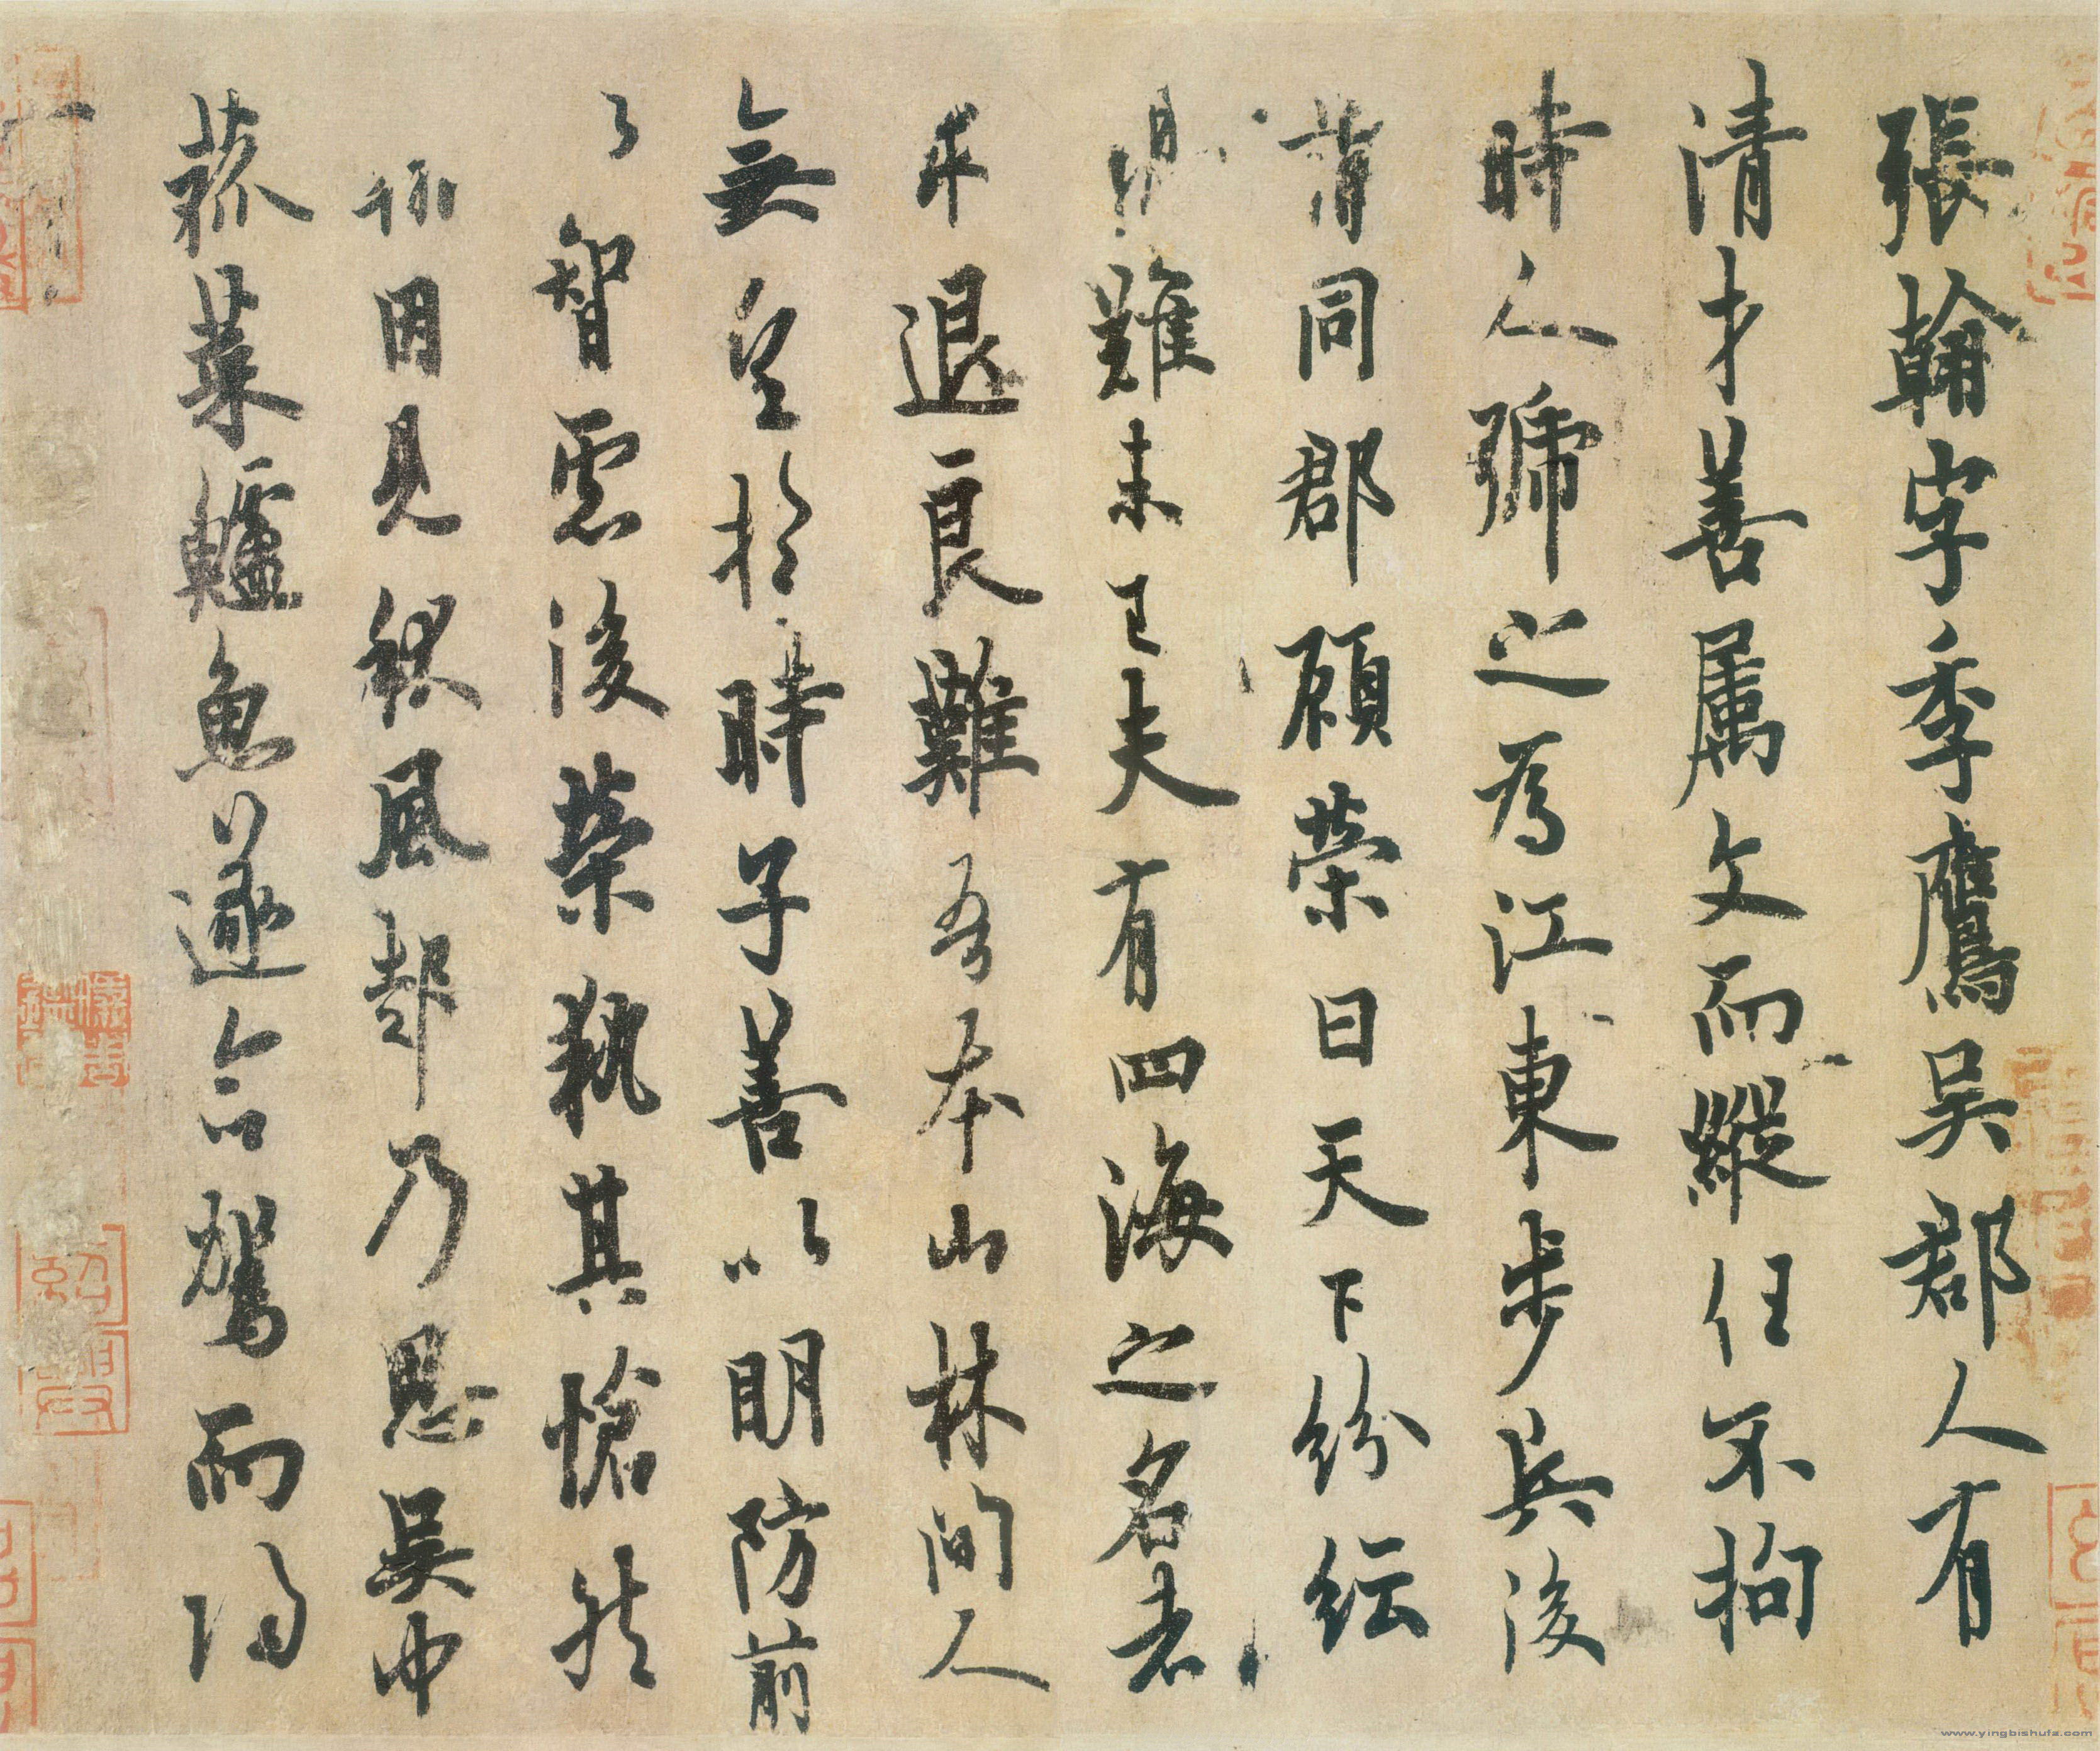 張翰字季鷹吳郡人有
清才善属文而縱任不拘
時人號之為江東步兵後
謂同郡顧榮曰天下紛紜
難未已夫有四海之名者
求退良難吾本山林間人
無望於時子善以明防前
以智慮後榮執其愴然
翰因見秋風起乃思吳中
菰菜鱸魚遂命駕而歸
www.yingbishufa.com